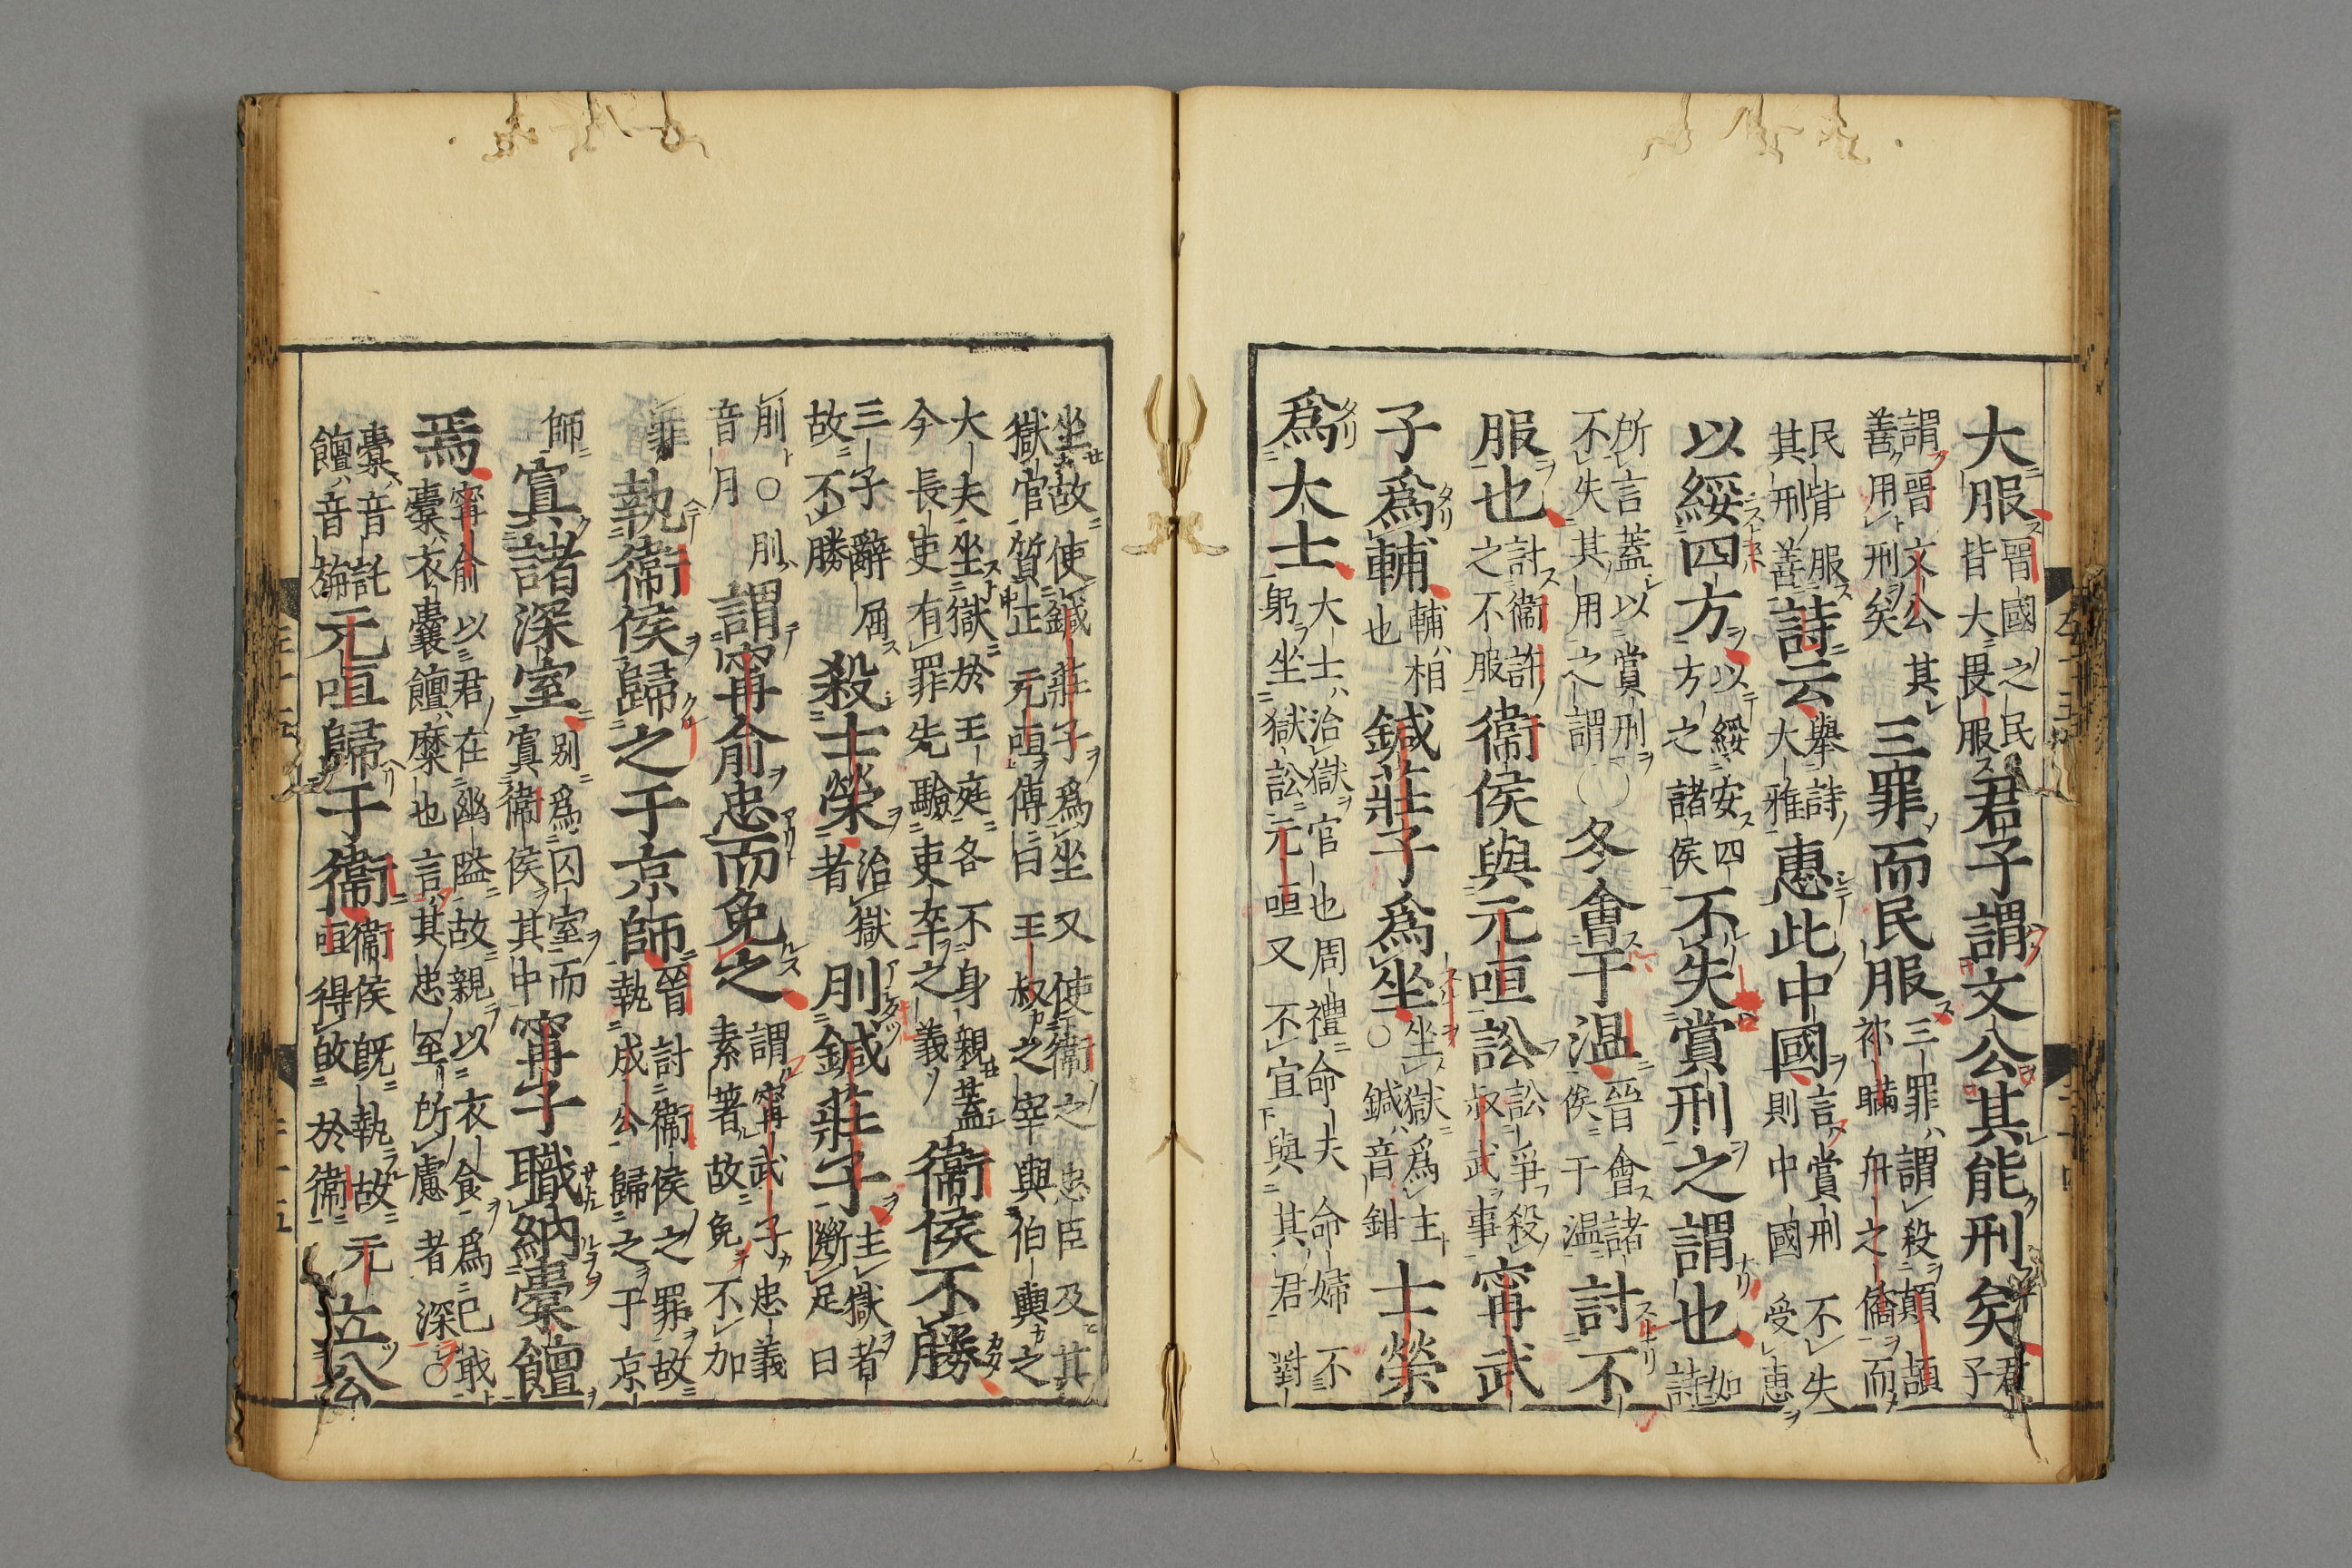 大服晉國之民皆大畏服君子謂文公其能刑矣君子
謂晋文公其善用刑矣三罪而民服三罪謂殺顛頡祁瞞舟之僑而
民皆服其刑善詩云舉詩大雅惠此中國言賞刑不失則中國受惠
以綏四方以綏安四方之諸侯不失賞刑之謂也如詩
所言蓋以賞刑不失其用之謂〇冬會于温晉會諸侯于温討不
服也討衞許之不服衞侯與元咺訟訟爭殺叔武事甯武
子爲輔輔相也鍼莊子爲坐坐獄爲主〇鍼音鉗士榮
爲大士大士治獄官也周禮命夫命婦不躬坐獄訟元咺又不宜與其君對
坐故使鍼莊子爲坐又使衞之忠臣及其獄官質正元咺傳曰王叔之宰與伯輿之
大夫坐獄於王庭各不身親蓋今長吏有罪先驗吏卒之義衞侯不勝
三子辭屈故不勝殺士榮治獄者刖鍼莊子主獄者斷足曰
刖〇刖音月謂甯俞忠而免之謂甯武子忠義素著故免不加
罪執衞侯歸之于京師晉討衞侯之罪故執成公歸之于京
師寘諸深室别爲囚室而寘衞侯其中甯子職納橐饘
焉甯俞以君在幽隘故親以衣食爲己職橐衣囊饘糜也言其忠至所慮者深〇
橐音託饘音旃元咺歸于衞衞侯既執故元咺得敀於衞立公